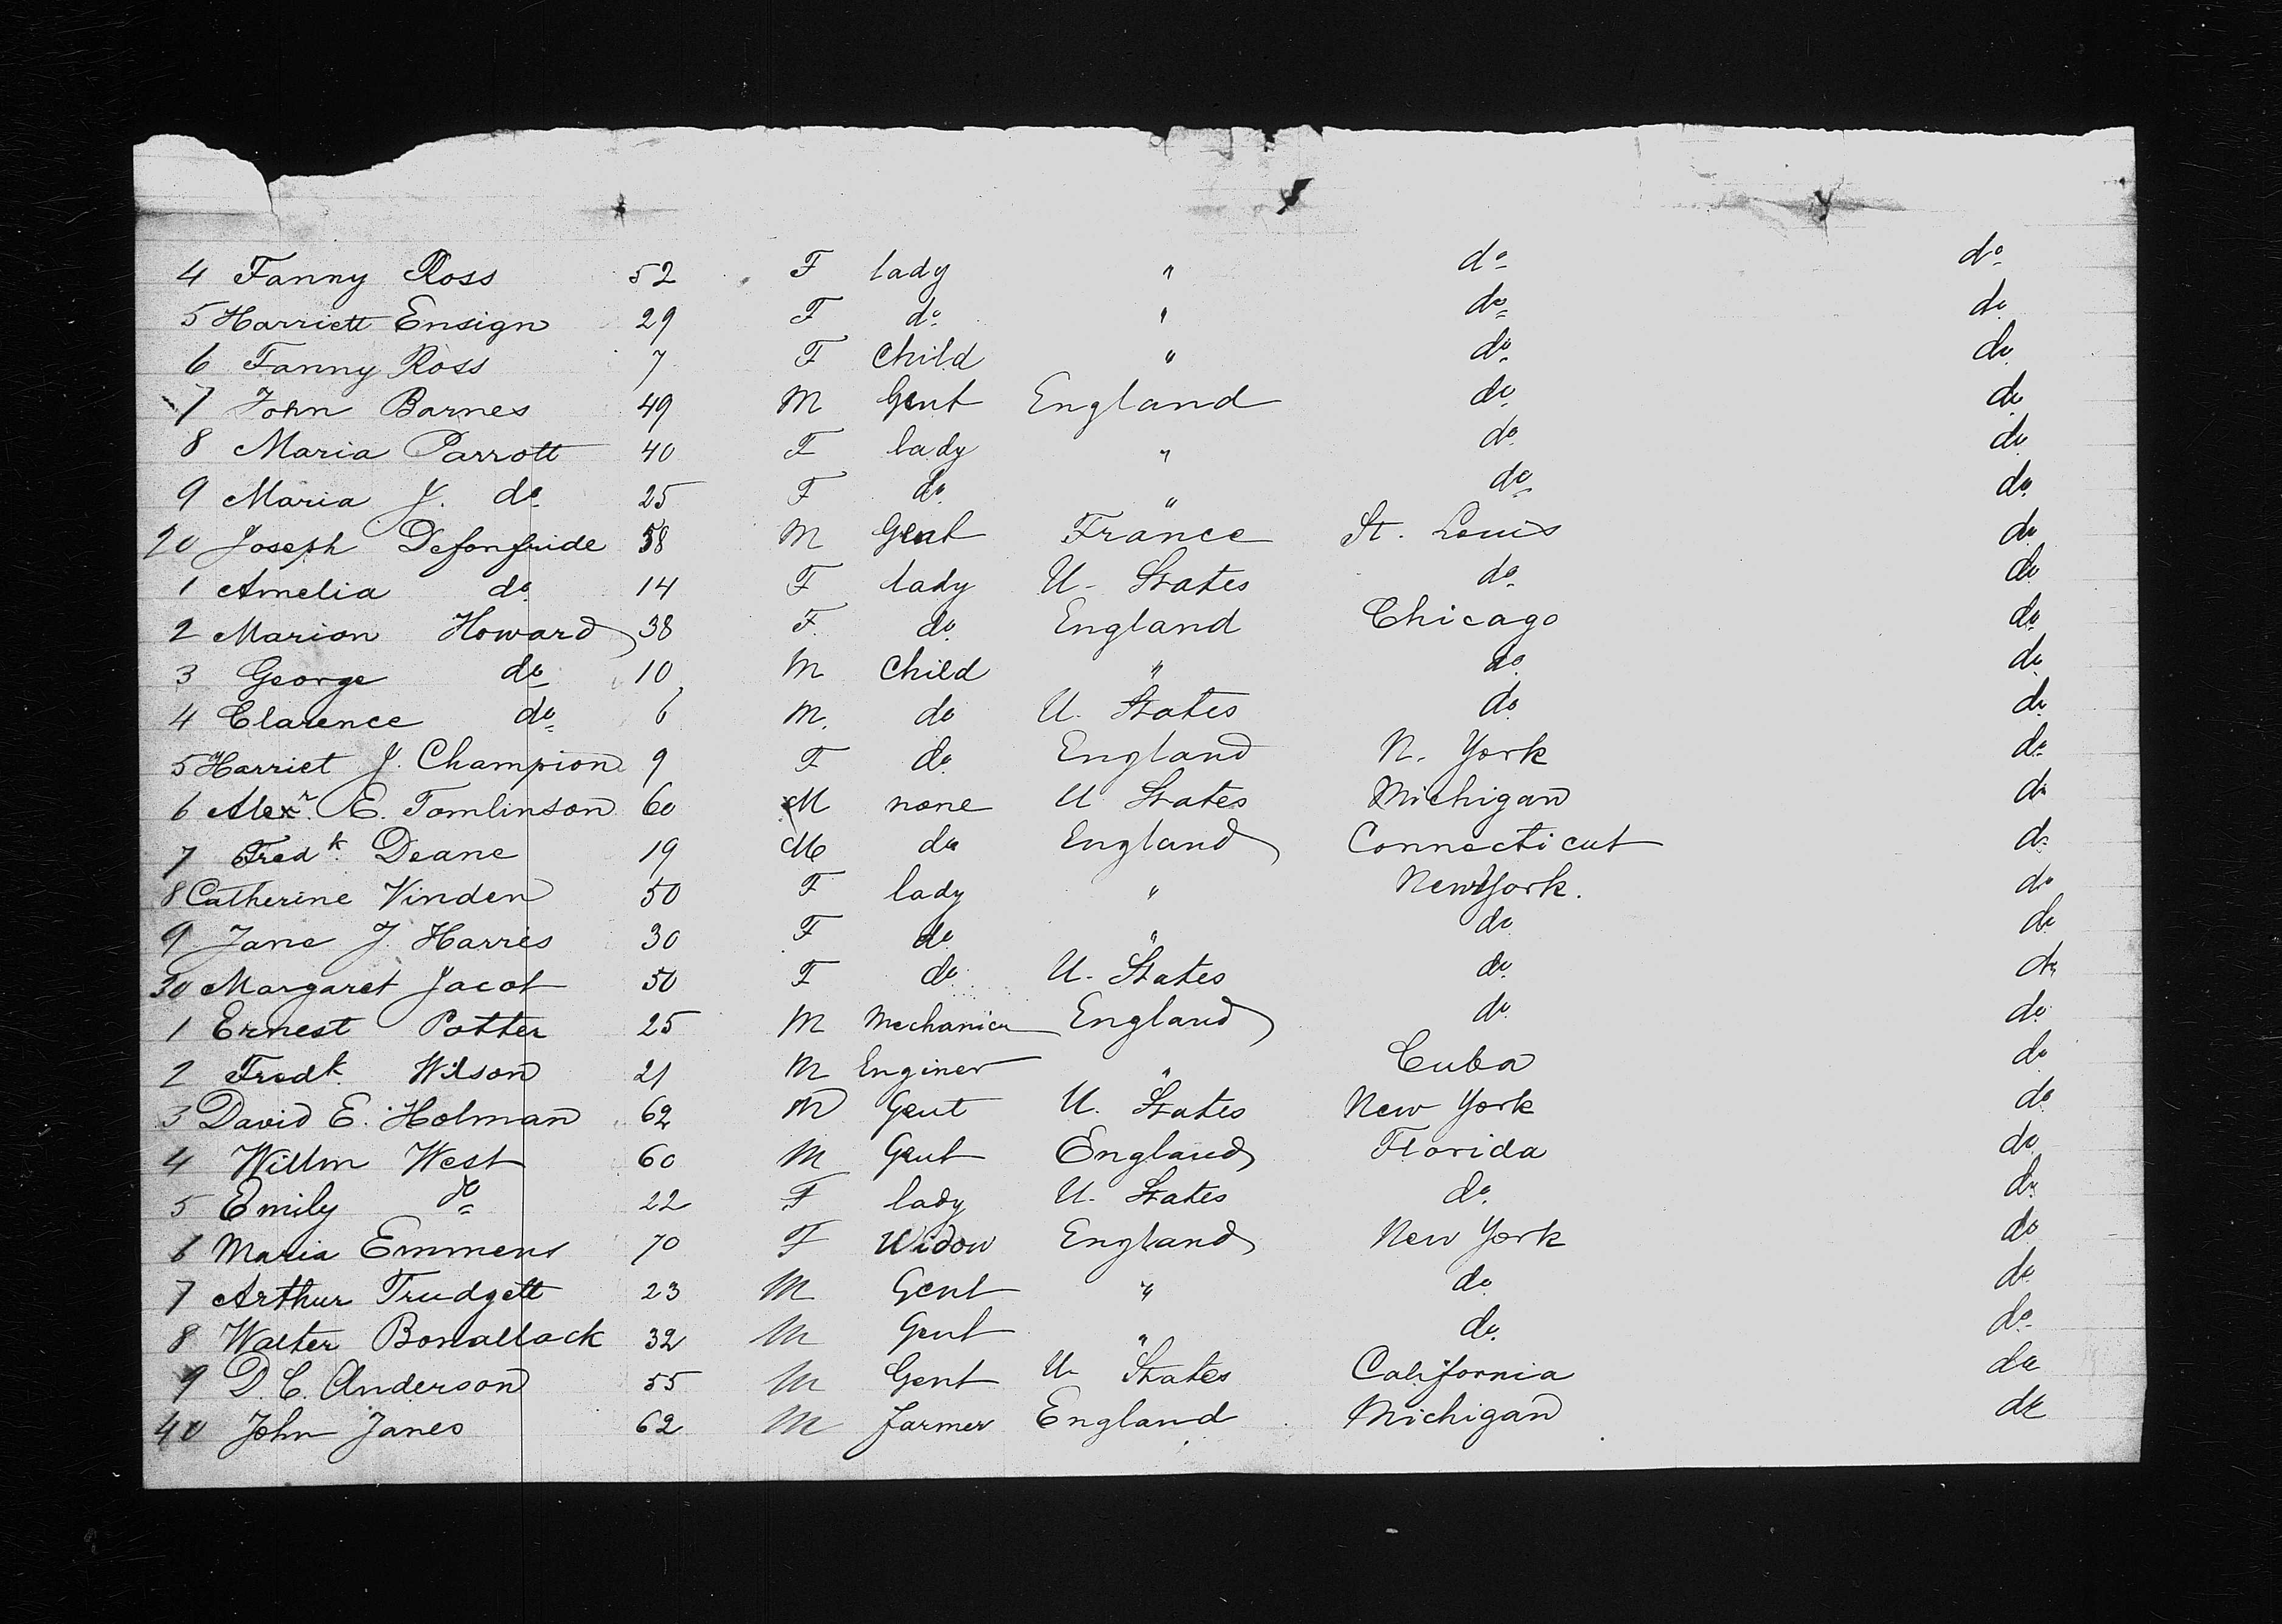 4 Fanny Ross 52 F lady " do do
5 Harriett Ensign 29 F do " do do
6 Fanny Ross 7 F Child " do do
7 John Barnes 49 M Gent England do do
8 Maria Parrott 40 F lady " do do
9 Maria J. do 25 F do " do do
20 Joseph 38 M Gent France St. Louis do
1 Amelia do 14 F lady U. States do do
2 Marion Howard 38 F. do England Chicago do
3 George do 10 M Child " do do
4 Clarence do 6 M. do U. States do do
5 Harriet J. Champion 9 F do England N. York do
6 Alexr. E. Tomlinson 60 M none U States Michigan do
7 Fredk. Deane 19 M do England Connecticut do
8 Catherine Vinden 50 F lady " New York. do
9 Jane J. Harris 30 F do " do do
30 Margaret Jacot 50 F do U. States do do
1 Ernest Potter 25 M England do do
2 Fredk. Wilson 21 M Enginer " Cuba do
3 David E. Holman 62 M Gent U. States New York do
4 Willm West 60 M Gent England Florida do
5 Emily do 22 F lady U. States do do
6 Maria Emmens 70 F Widow England New York do
7 Arthur Trudgett 23 M Gent " do do
8 Walter Bonallack 32 M Gent " do do
9 D. C. Anderson 55 M Gent U States California do
40 John Janes 62 M farmer England Michigan do